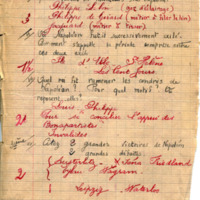 Philippe Lebon (gaz d'éclairage)
3 Philippe de Girard (métier à filer le lin)
Jacquard (métier à tisser)
Napoléon fut-il successivement exilé.
Comment s'appelle la période comprise entre
ces deux exils
Ile d'Elbe Ste Hélène
1½ Les Cent Jours
Qui a fit ramener les cendres de
Napoléon ? Pour quel motif ? Où
reposent elles ?
Louis-Philippe
2 Pour se concilier l'appui des
Bonapartistes
Invalides
Citez 3 grandes victoires de Napoléon
2 grandes défaites
Austerlitz Iéna Friedland
2 Wagram
Leipzig Waterloo